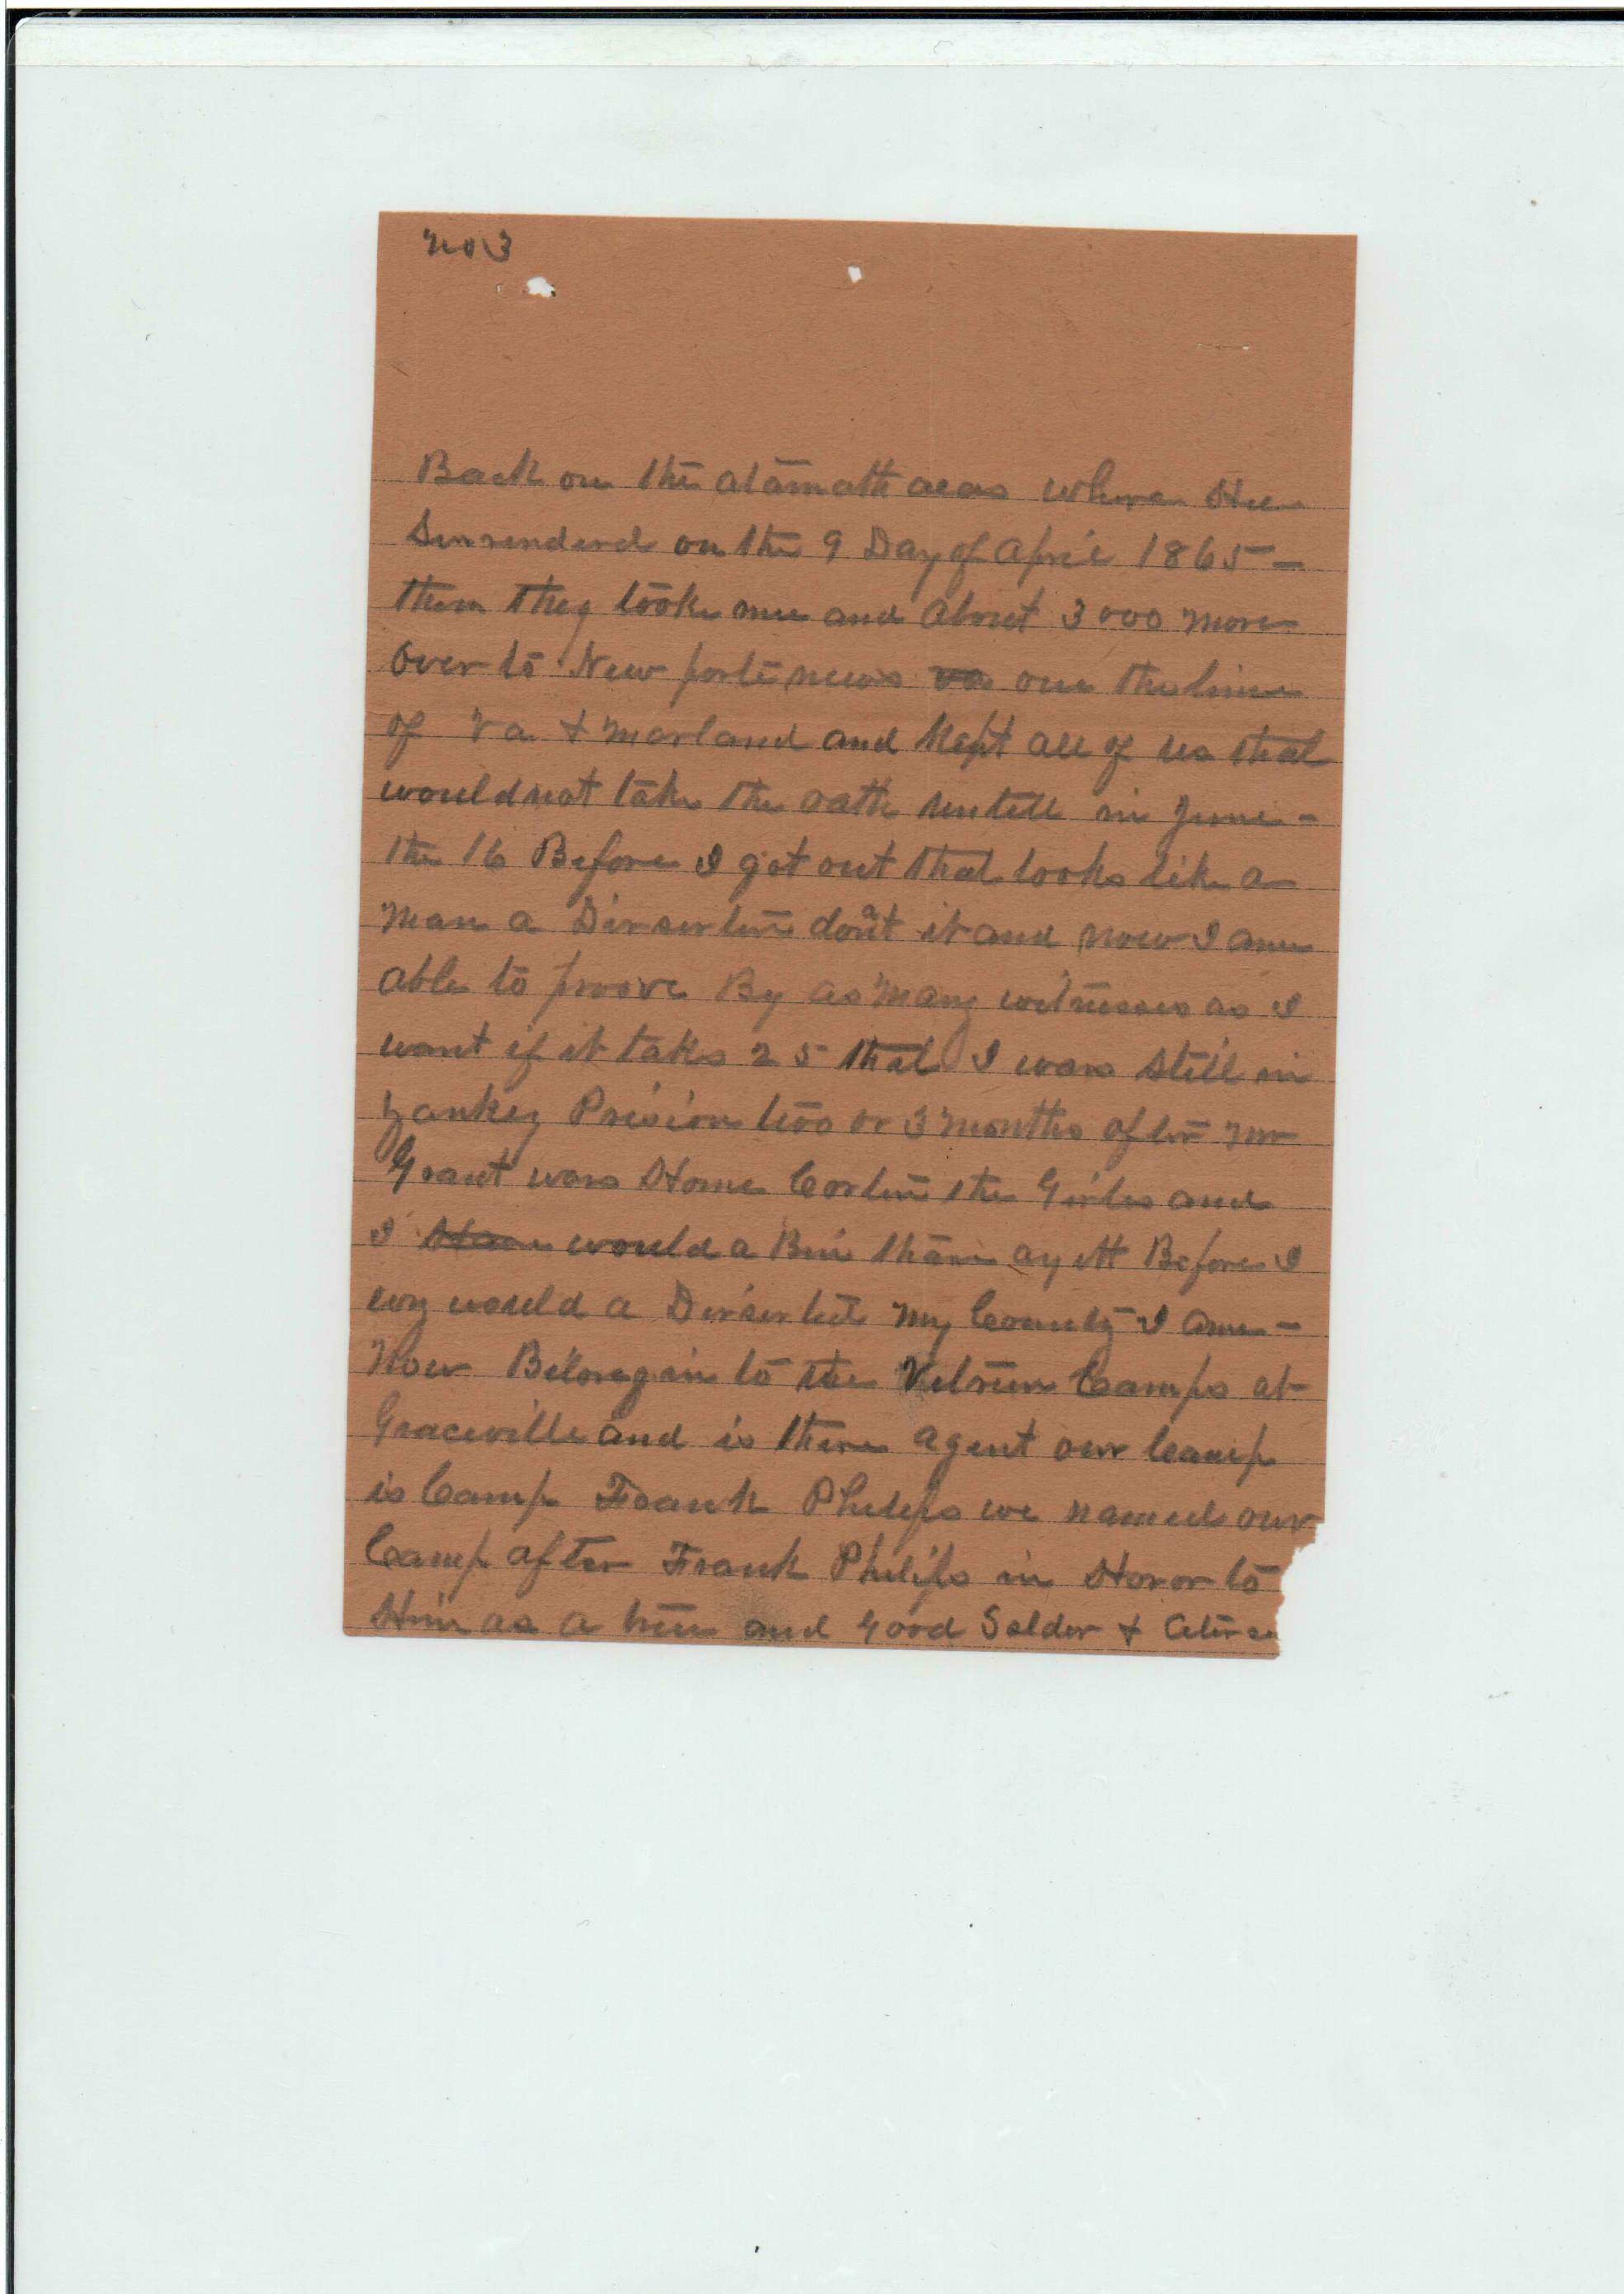 no 3
Back on the atamatt aeas where Hee
Surrenderd on the 9 Day of April 1865 -
then they tooke me and About 3000 more
over to New porte news va on the line
of Va + marland and Kept all of us that
would not take the oath untell in June -
the 16 Before I got out that looks like a
man a Dirserten don't it and now I am
able to proove By as many witnesses as I
want if it takes 25 that I was still in
yankey Prision two or 3 months after mr
Grant was Home Corten the Girles and
I would a Bin thair yett Before I
would a Dirserted my County I am -
Now Belongin to the Vetren Camps at
Graceville and is there agent our Camp
is Camp Frank Philips we named our
Camp after Frank Philips in Honor to
Him as a true and Good Solder +